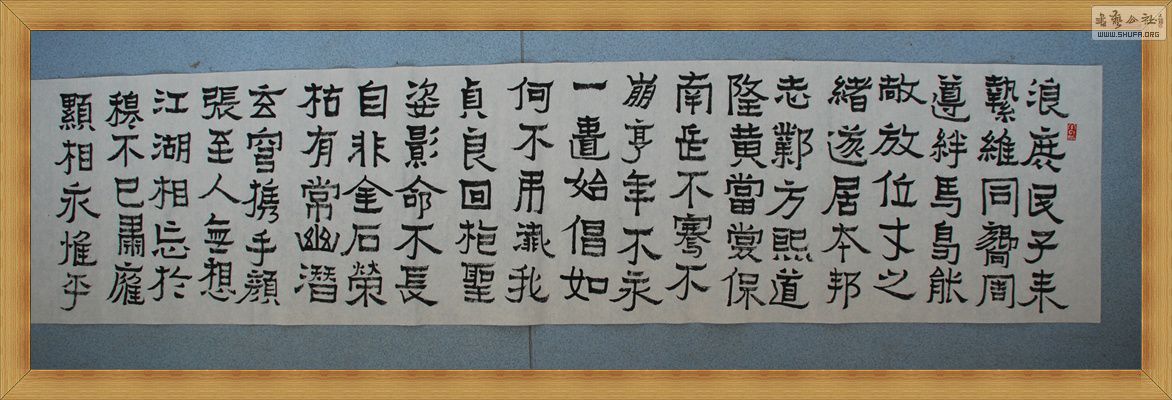 浪庶民子来
縶維同嚮周
遵絆馬曷能
敞放位才之
緒遂居本邦
志鄴方熙道
隆黄當裳保
南岳不騫不
崩亨年不永
一匱始倡如
何不弔殲我
貞良回抱聖
姿影命不長
自非金石榮
枯有常幽潛
玄穹携手顔
張至人無想
江湖相忘於
穆不已肅廱
顯相永惟平
書藝公社
WWW.SHUFA.ORG